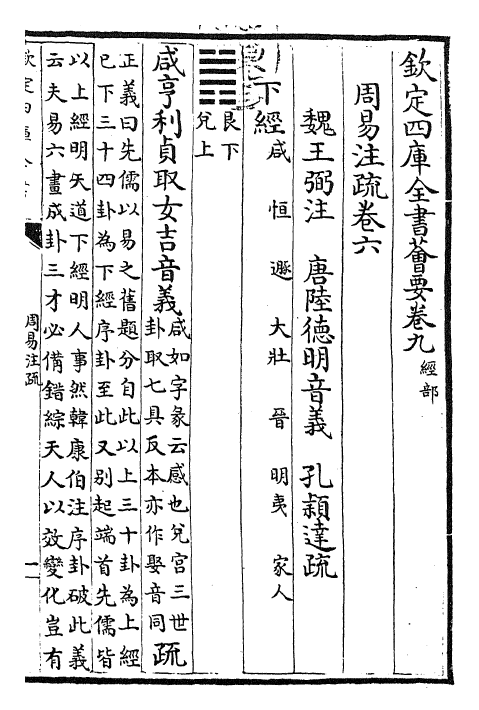 欽定四庫全書薈要卷九 經部
周易注疏卷六
魏王弼注 唐陸德明音義 孔穎達疏
下經 咸 恒 遯 大壯 晉 明夷 家人
艮下
兌上
咸亨利貞取女吉音義 咸如字彖云感也兌宮三世
卦取七具反本亦作娶音同 疏
正義曰先儒以易之舊題分自此以上三十卦為上經
已下三十四卦為下經序卦至此又別起端首先儒皆
以上經明天道下經明人事然韓康伯注序卦破此義
云夫易六畫成卦三才必備錯綜天人以效變化豈有
周易注疏
一